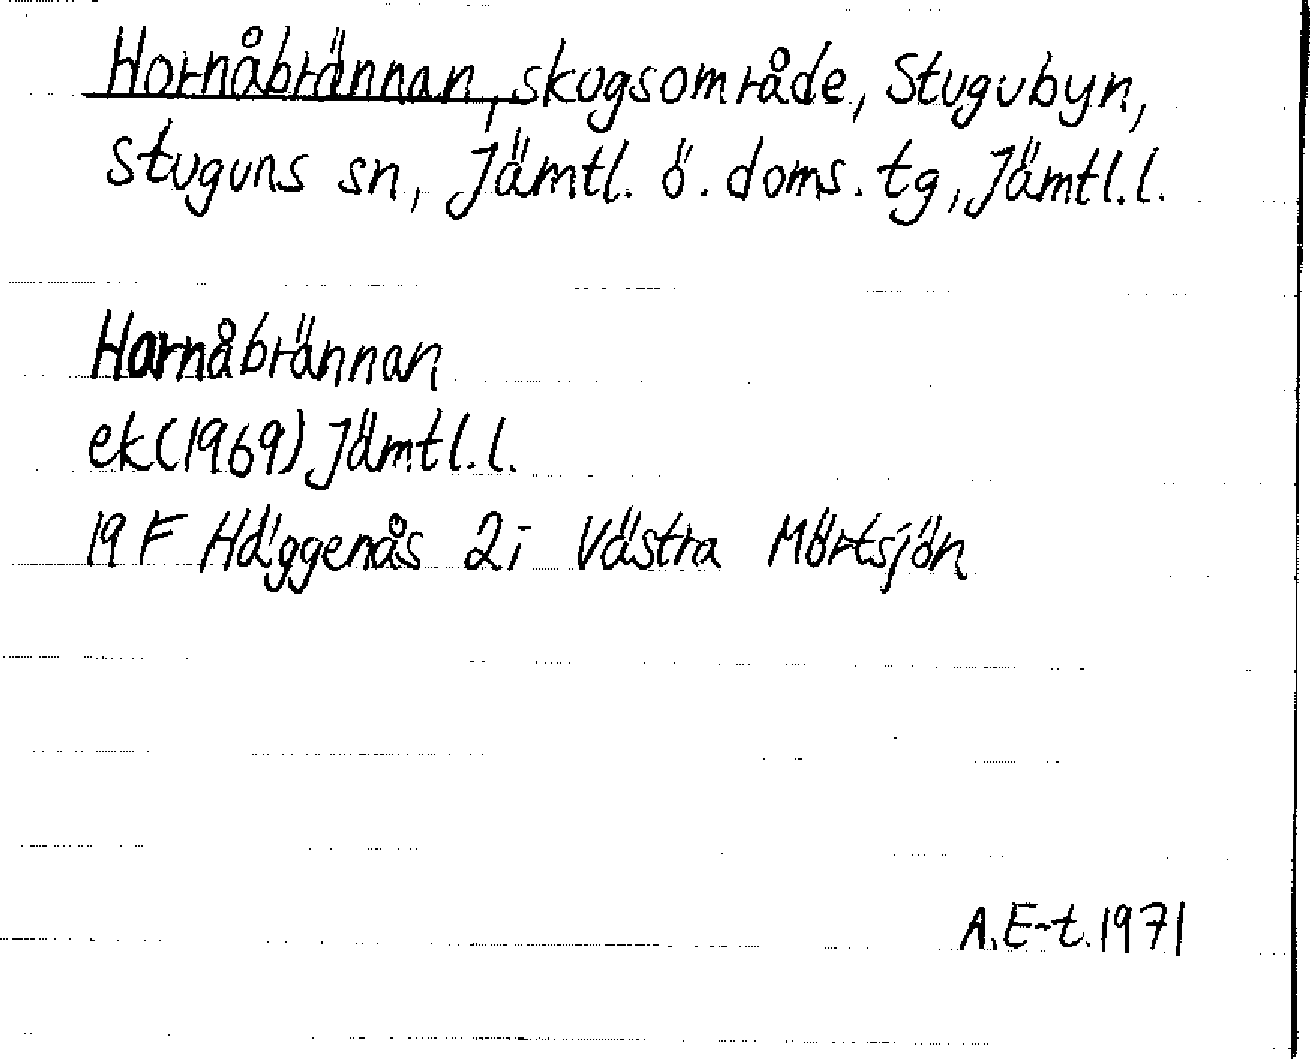 Hornåbrännan, skogsområde, Stugubyn,
Stuguns sn, Jämtl. ö. doms. tg, Jämtl. l.
Hornåbrännan
ek (1969) Jämtl. l.
19 F Häggenås 2i Västra Mörtsjön
A. E-t. 1971